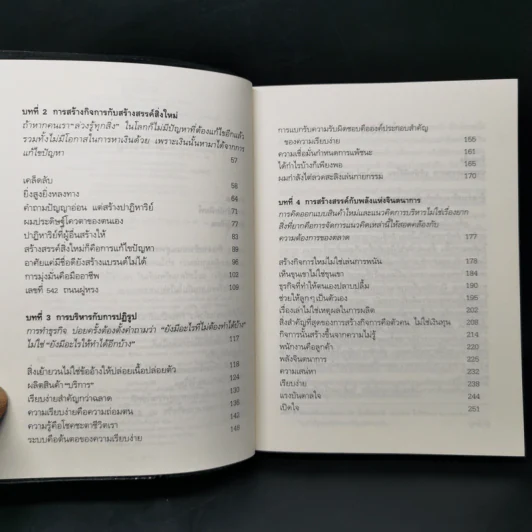 บทที่ 2 การสร้างกิจการกับสร้างสรรค์สิ่งใหม่
ถ้าหากคนเรา "ล่วงรู้ทุกสิ่ง" ในโลกก็ไม่มีปัญหาที่ต้องแก้ไขอีกแล้ว
รวมทั้งไม่มีโอกาสในการหาเงินด้วย เพราะเงินนั้นหามาได้จากการ
แก้ไขปัญหา 57
เคล็ดลับ 58
ยิ่งสูงยิ่งหลงทาง 64
คำถามปัญญาอ่อน แต่สร้างปาฏิหาริย์ 71
ผมประดิษฐ์โควตาของตนเอง 77
ปาฏิหาริย์ที่ผู้อื่นสร้างให้ 83
สร้างสรรค์สิ่งใหม่ก็คือการแก้ไขปัญหา 89
อาศัยแค่มีชื่อดียังสร้างแบรนด์ไม่ได้ 96
การมุ่งมั่นคือมืออาชีพ 103
เลขที่ 542 ถนนฝูหรง 109
บทที่ 3 การบริหารกับการปฏิรูป
การทำธุรกิจ บ่อยครั้งต้องตั้งคำถามว่า "ยังมีอะไรที่ไม่ต้องทำได้บ้าง"
ไม่ใช่ "ยังมีอะไรให้ทำได้อีกบ้าง" 117
สิ่งเย้ายวนไม่ใช่ข้ออ้างให้ปล่อยเนื้อปล่อยตัว 118
ผลิตสินค้า"บริการ" 124
เรียบง่ายสำคัญกว่าฉลาด 130
ความเรียบง่ายคือความถ่อมตน 136
ความรู้คือโชคชะตาชีวิตเรา 142
ระบบคือต้นตอของความเรียบง่าย 148
การแบกรับความรับผิดชอบคือองค์ประกอบสำคัญ
ของความเรียบง่าย 155
ความเชื่อมั่นกำหนดการแพ้ชนะ 161
ได้กำไรบ้างก็เพียงพอ 165
ผมกำลังไต่ลวดสะลิงเล่นกายกรรม 170
บทที่ 4 การสร้างสรรค์กับพลังแห่งจินตนาการ
การคิดออกแบบสินค้าใหม่และแนวคิดการบริหารไม่ใช่เรื่องยาก
สิ่งที่ยากคือการจัดการแนวคิดเหล่านี้ให้สอดคล้องกับ
ความต้องการของตลาด 177
สร้างกิจการใหม่ไม่ใช่เล่นการพนัน 178
เห็นขุนเขาไม่ใช่ขุนเขา 184
ธุรกิจที่ทำให้ตนเองปลาบปลื้ม 190
ช่วยให้ลูกๆ เป็นตัวเอง 195
เรื่องเล่าไม่ใช่เหตุผลในการผลิต 202
สิ่งสำคัญที่สุดของการสร้างกิจการคือตัวคน ไม่ใช่เงินทุน 208
กิจการนั้นสร้างขึ้นจากความไม่รู้ 214
พนักงานคือลูกค้า 220
พลังจินตนาการ 225
ความเสน่หา 232
เรียบง่าย 238
แรงบันดาลใจ 244
เปิดใจ 251